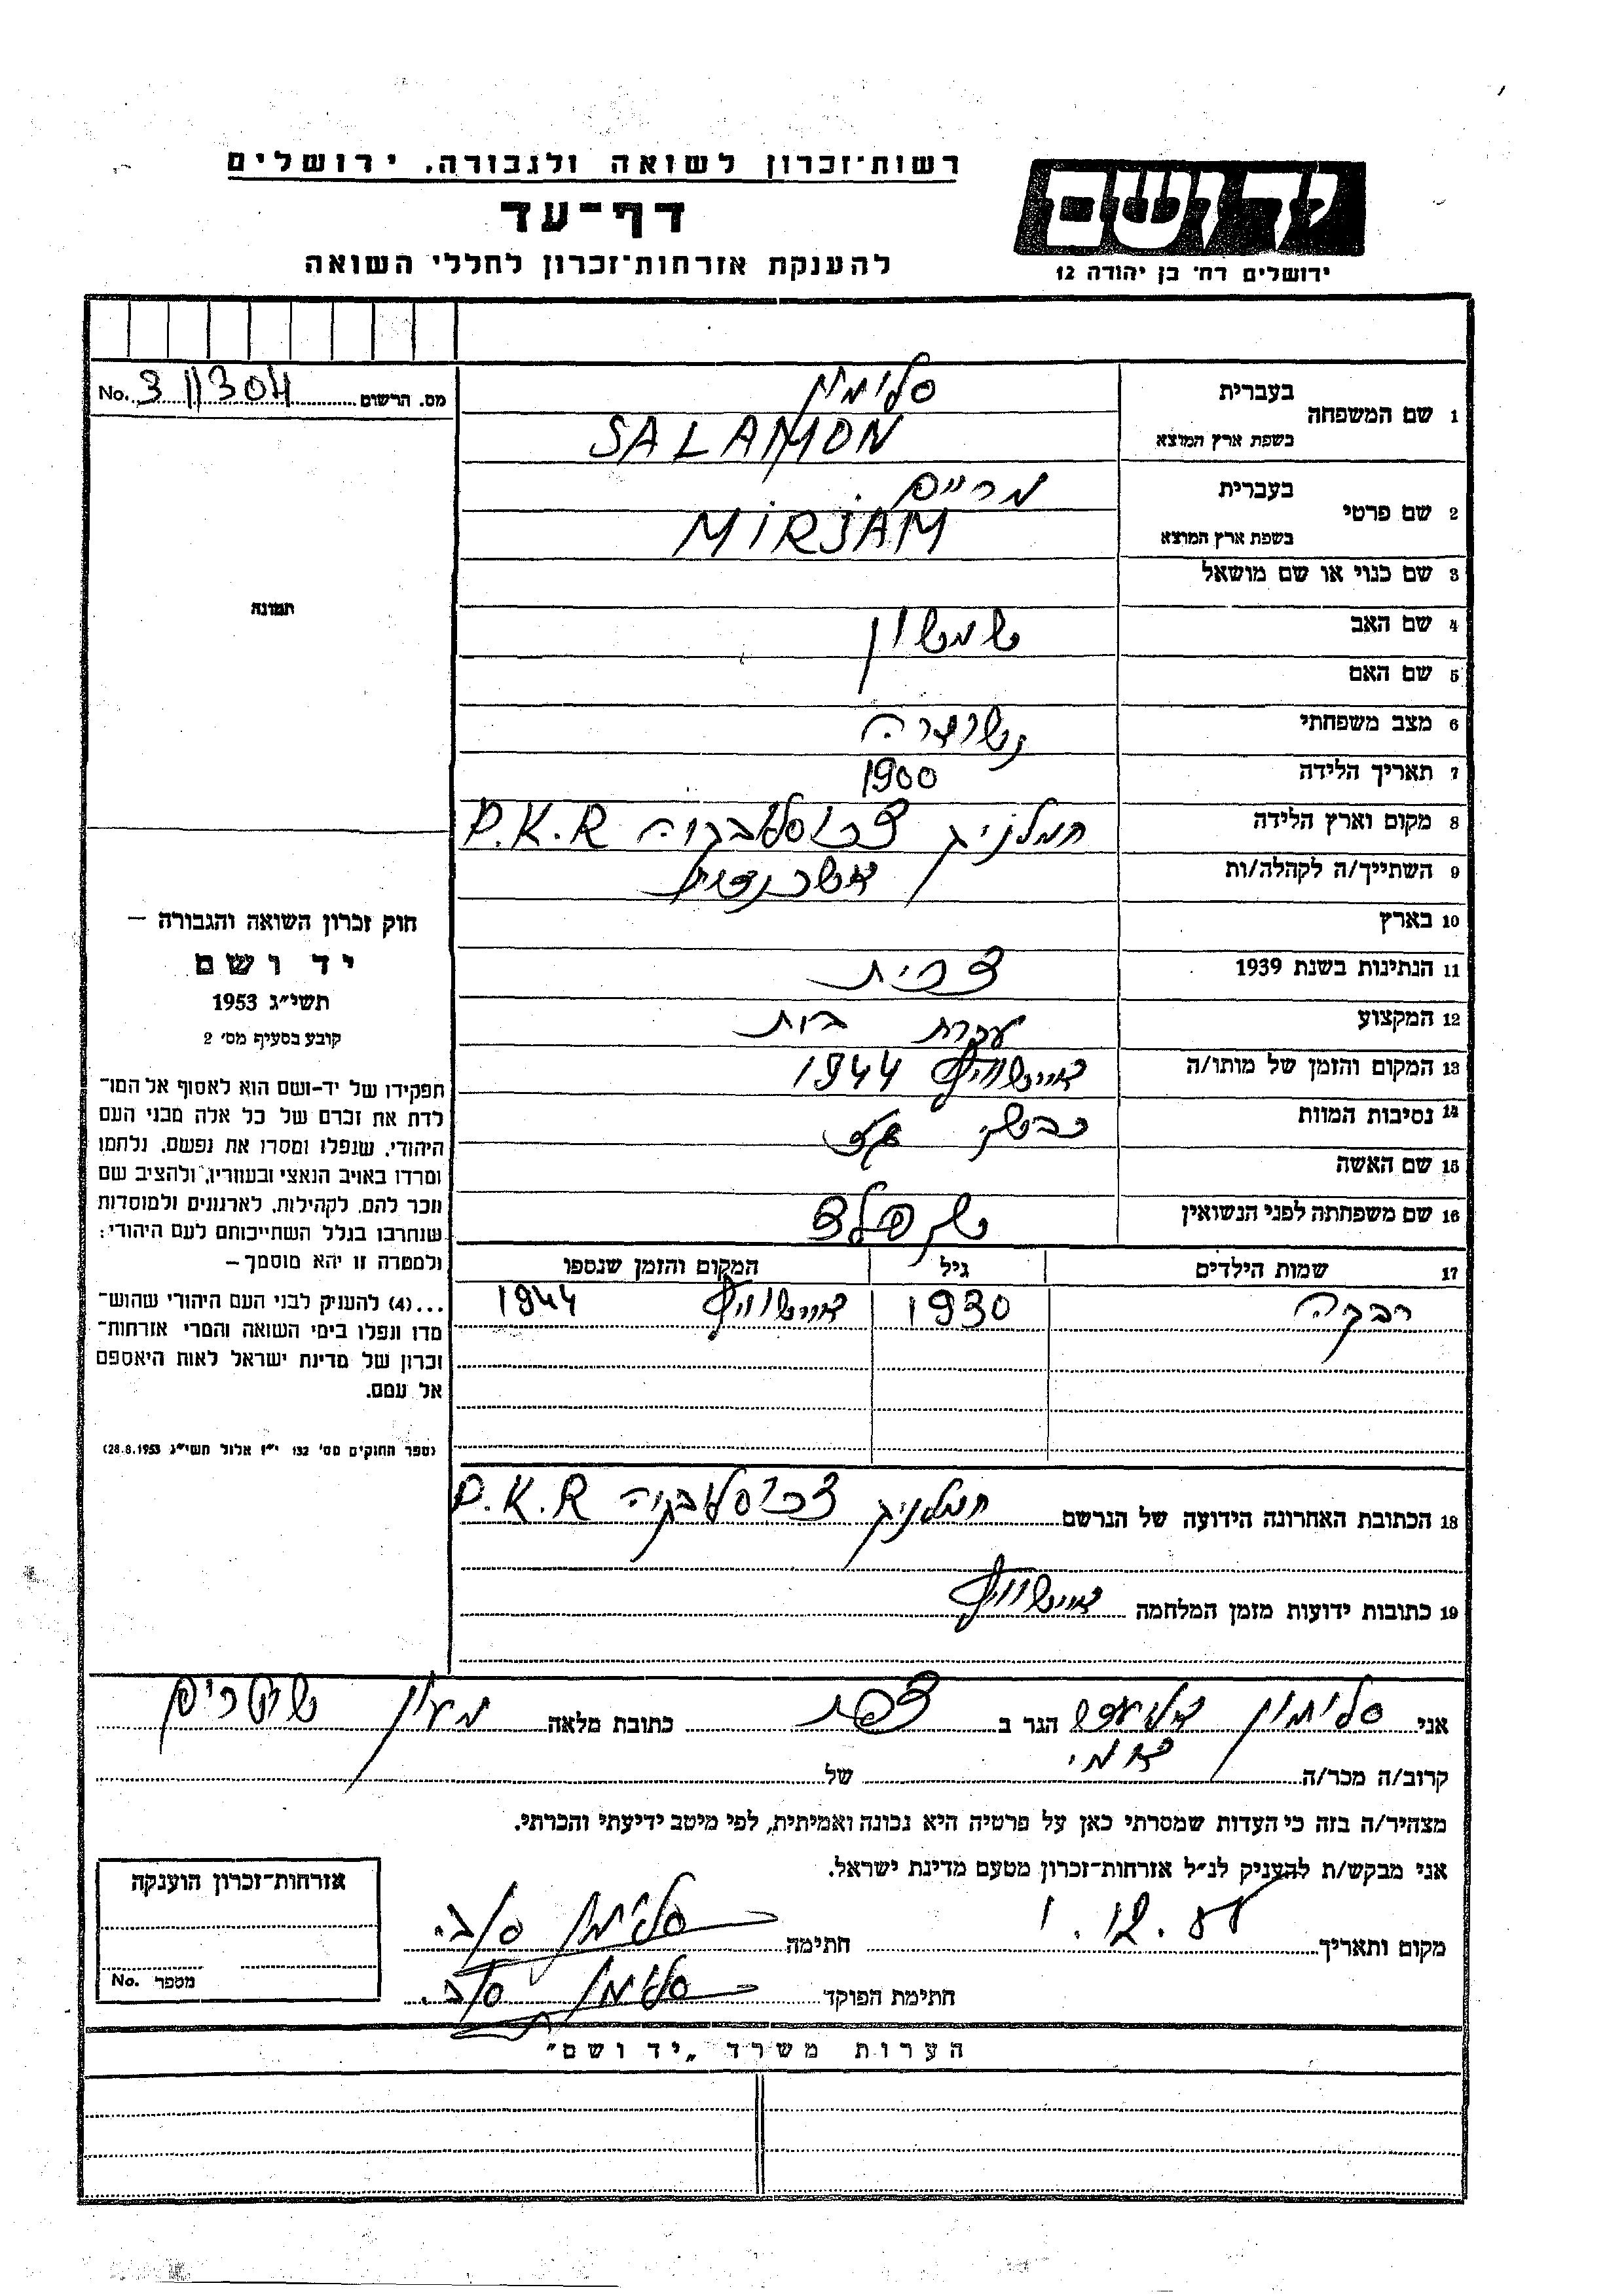 רשות־זכרון לשואה ולגבורה, ירושלים
דף־עד
להענקת אזרחות־זכרון לחללי השואה
יד ושם
ירושלים רח׳ בן יהודה 12
מס. הרשום 311304 No.
תמונה
1 שם המשפחה
בעברית סלומון
בשפת ארץ המוצא SALAMON
2 שם פרטי
בעברית מרים
בשפת ארץ המוצא MIRJAM
3 שם כנוי או שם מושאל
4 שם האב שמשון
5 שם האם
6 מצב משפחתי נשואה
7 תאריך הלידה 1900
8 מקום וארץ הלידה חמלניק P.K.R
9 השתייך/ה לקהלה/ות
10 בארץ
11 הנתינות בשנת 1939
12 המקצוע עקרת בית
13 המקום והזמן של מותו/ה אוישוויץ 1944
14 נסיבות המוות כבשן גז
15 שם האשה
16 שם משפחתה לפני הנשואין
17 שמות הילדים גיל המקום והזמן שנספו
רבקה 1930 אוישוויץ 1944
18 הכתובת האחרונה הידועה של הנרשם חמלניק P.K.R
19 כתובות ידועות מזמן המלחמה אוישוויץ
חוק זכרון השואה והגבורה –
יד ושם
תשי״ג 1953
קובע בסעיף מס׳ 2
תפקידו של יד-ושם הוא לאסוף אל המו־
לדת את זכרם של כל אלה מבני העם
היהודי, שנפלו ומסרו את נפשם, נלחמו
ומרדו באויב הנאצי ובעוזריו, ולהציב שם
וזכר להם, לקהילות, לארגונים ולמוסדות
שנחרבו בגלל השתייכותם לעם היהודי;
ולמטרה זו יהא מוסמך –
...(4) להעניק לבני העם היהודי שהוש־
מדו ונפלו בימי השואה והמרי אזרחות־
זכרון של מדינת ישראל לאות היאספם
אל עמם.
(ספר החוקים מס׳ 132 י״ז אלול תשי״ג 28.8.1953)
אני סלומון הגר ב צפת כתובת מלאה מעון
קרוב/ה מכר/ה אמי של
מצהיר/ה בזה כי העדות שמסרתי כאן על פרטיה היא נכונה ואמיתית, לפי מיטב ידיעתי והכרתי.
אני מבקש/ת להעניק לנ״ל אזרחות־זכרון מטעם מדינת ישראל.
מקום ותאריך 1.12. חתימה סלומון
חתימת הפוקד סלומון
אזרחות־זכרון הוענקה
מספר No.
הערות משרד „יד ושם״